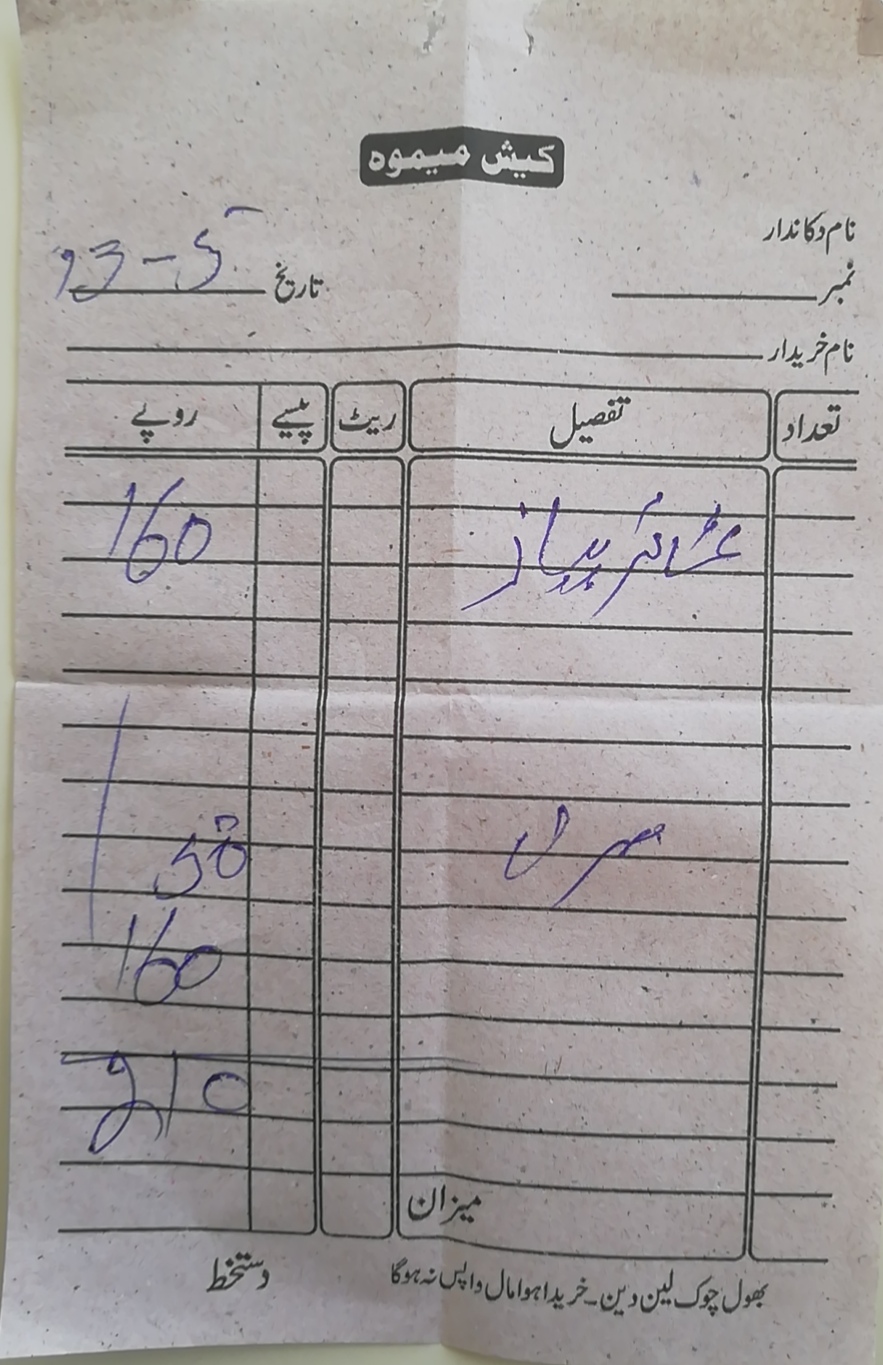 کیش میموہ
نام دکاندار
نمبر تاریخ 23-5
نام خریدار
تعداد تفصیل ریٹ پیسے روپے
ٹماٹر پیاز 160
50
160
210
میزان
بھول چوک لین دین ۔ خریدا ہوا مال واپس نہ ہوگا دستخط